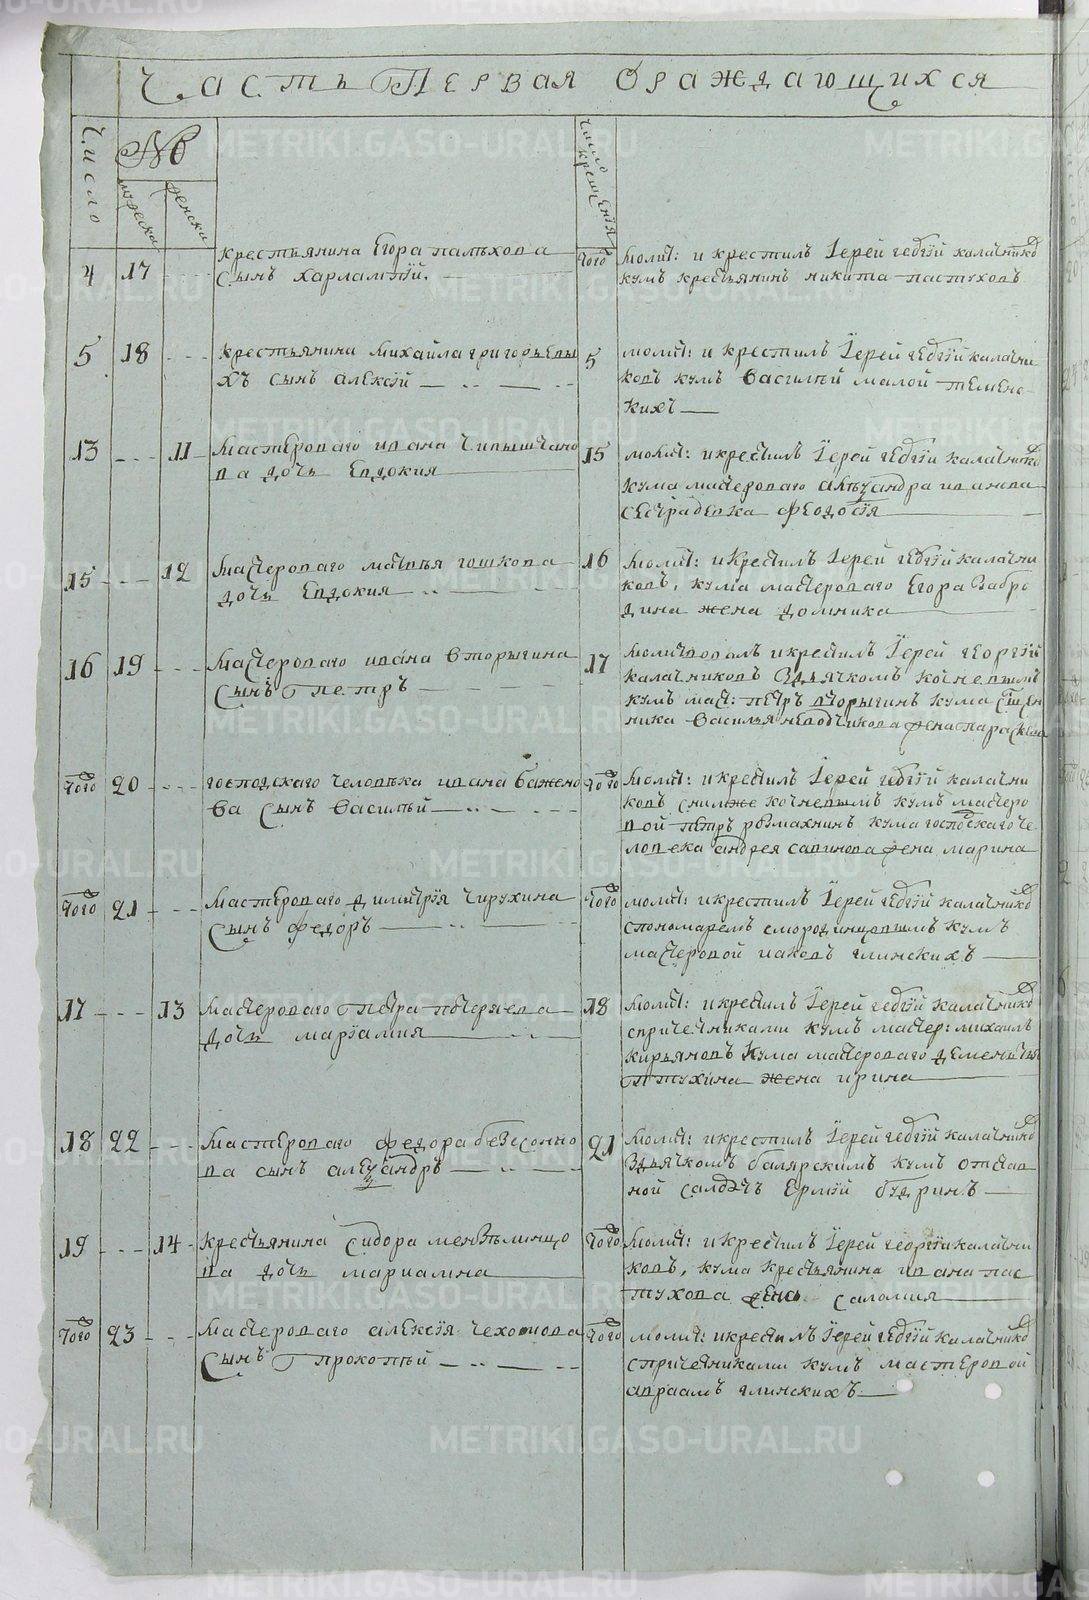 Часть Первая Ораждающихся
Число
№
мужеска
женска
Число крещенія
4 17 крестьянина Егора палъхова
сынъ Харлампій.
того молит: и крестилъ Іерей геѡргій калашниковъ
кумъ крестьянинъ никита пастуховъ
5 18 крестьянина михайла григорьевы
хъ сынъ алексій
5 молит: и крестилъ Іерей геѡргій калашни
ковъ кумъ василій малой теменс-
кихъ
13 11 мастероваго ивана чипышчано
ва дочь Евдокия
15 молит: и крестилъ Іерей геѡргій калашниковъ
кума мастероваго алеѯандра иванова
сестра девка феодосія
15 12 мастероваго матвея гошкова
дочь Евдокия
16 молит: и крестилъ Іерей геѡргій калашни
ковъ, кума мастероваго Егора Забро
дина жена домника
16 19 мастероваго ивана вторыгина
сынъ петръ
17 молитвовалъ и крестилъ Іерей георгій
калашниковъ Здьячкомъ кочневымъ
кумъ маст: петръ вторыгинъ кума сщен
ника василья жена параскева
того 20 господскаго человѣка ивана бажено
ва сынъ василій
того молит: и крестилъ Іерей геѡргій калашни
ковъ снимже кочневымъ кумъ мастеро
вой петръ розмахнинъ кума господскаго че
ловека андрея савинова жена марина
того 21 мастероваго димитрія чирухина
сынъ федоръ
того молит: и крестилъ Іерей геѡргій калашниковъ
спономаремъ смородинцовымъ кумъ
мастеровой иаковъ глинскихъ
17 13 мастероваго петра потеряева
дочь маріамия
18 молит: и крестилъ Іерей геѡргій калашниковъ
спричетниками кумъ мастер: михаилъ
кирьяновъ кума мастероваго дементья
птухина жена ирина
18 22 мастероваго федора безсоно
ва сынъ алеѯандръ
21 молит: и крестилъ Іерей геѡргій калашниковъ
Здьячкомъ балярскимъ кумъ отстав
ной салдатъ Ермій бударинъ
19 14 крестьянина сидора мензѣлинцо
ва дочь мариамна
того молит: и крестилъ Іерей георгій калашни
ковъ, кума крестьянина ивана пас
тухова жена саломия
того 23 мастероваго алексія чехомова
сынъ прокопѣй
того молит: и крестилъ Іерей геѡргій калашниковъ
спричетниками кумъ мастеровой
авраамъ глинскихъ
METRIKI.GASO-URAL.RU